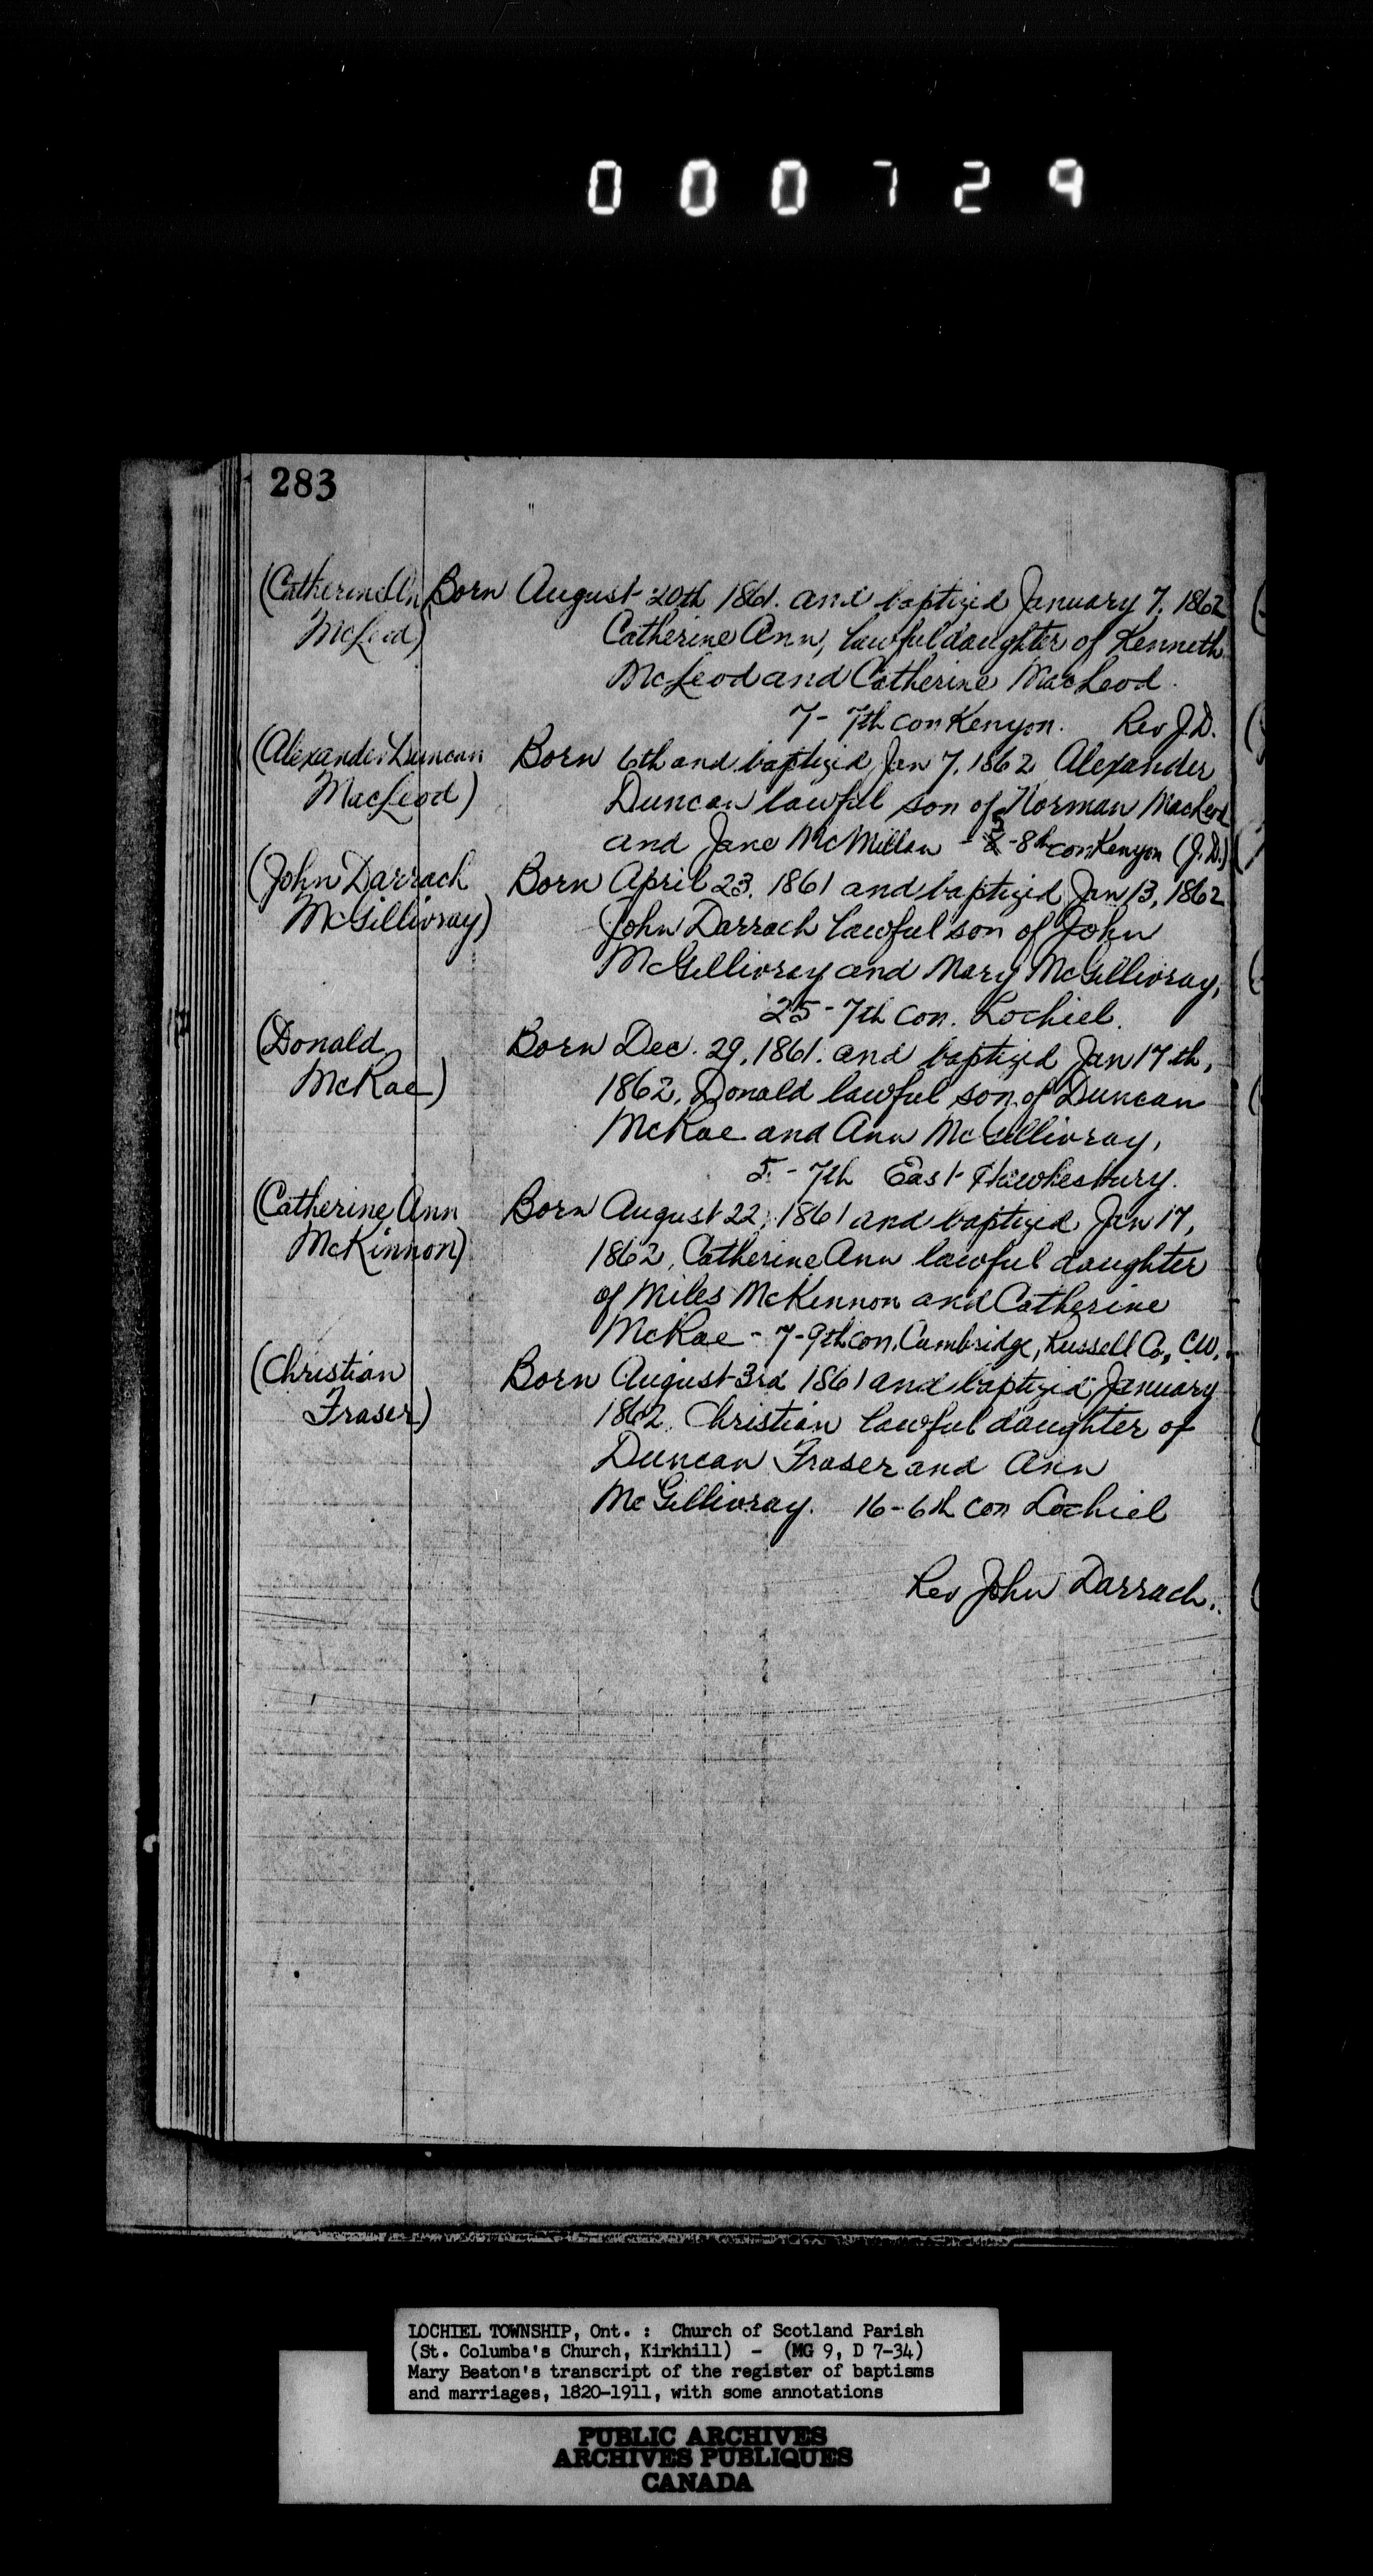 000729
283
(Catherine An Born August 20th 1861. and baptized January 7, 1862
McLeod) Catherine Ann, lawful daughter of Kenneth
McLeod and Catherine MacLeod.
7 - 7th con Kenyon. Rev J.D.
(Alexander Duncan Born 6th and baptized Jan 7, 1862 Alexander
MacLeod) Duncan lawful son of Norman MacLeod
and Jane McMillan - 5 - 8th con Kenyon (J.D.)
(John Darrach Born April 23, 1861 and baptized Jan 13, 1862
McGillivray) John Darrach lawful son of John
McGillivray and Mary McGillivray,
25 - 7th con. Lochiel.
(Donald Born Dec. 29, 1861. and baptized Jan 17th,
McRae) 1862, Donald lawful son of Duncan
McRae and Ann McGillivray,
5 - 7th East Hawkesbury.
(Catherine Ann Born August 22, 1861 and baptized Jan 17,
McKinnon) 1862, Catherine Ann lawful daughter
of Miles McKinnon and Catherine
McRae - 7 - 9th con, Cambridge, Russell Co., C.W.
(Christian Born August 3rd 1861 and baptized January
Fraser) 1862. Christian lawful daughter of
Duncan Fraser and Ann
McGillivray. 16 - 6th con Lochiel
Rev John Darrach.
LOCHIEL TOWNSHIP, Ont. : Church of Scotland Parish
(St. Columba's Church, Kirkhill) - (MG 9, D 7-34)
Mary Beaton's transcript of the register of baptisms
and marriages, 1820-1911, with some annotations
PUBLIC ARCHIVES
ARCHIVES PUBLIQUES
CANADA